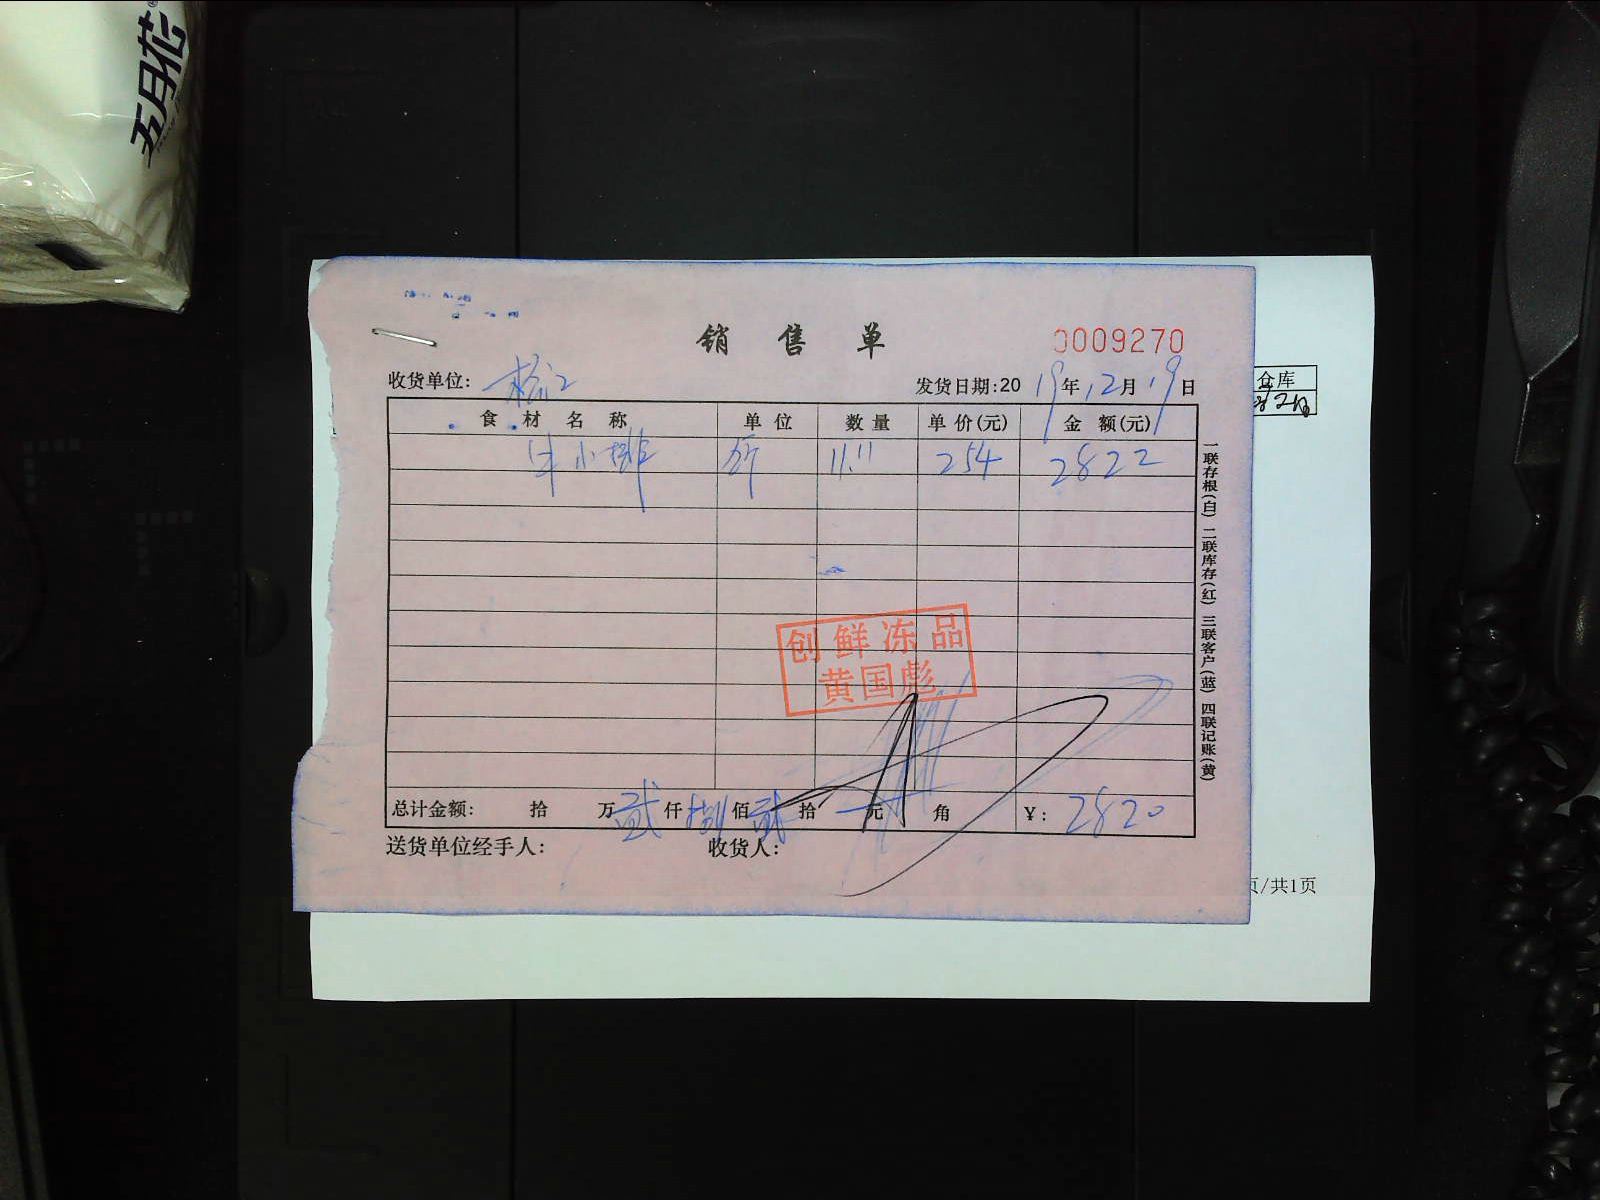 五月花
销售单 0009270
收货单位: 榕江 发货日期:2019年12月19日
仓库
食材名称 单位 数量 单价(元) 金额(元)
牛小排 斤 11.11 254 2822
一联存根(白) 二联库存(红) 三联客户(蓝) 四联记账(黄)
创鲜冻品
黄国彪
总计金额: 拾 万贰仟捌佰贰拾 元 角 ¥: 2820
送货单位经手人: 收货人:
页/共1页